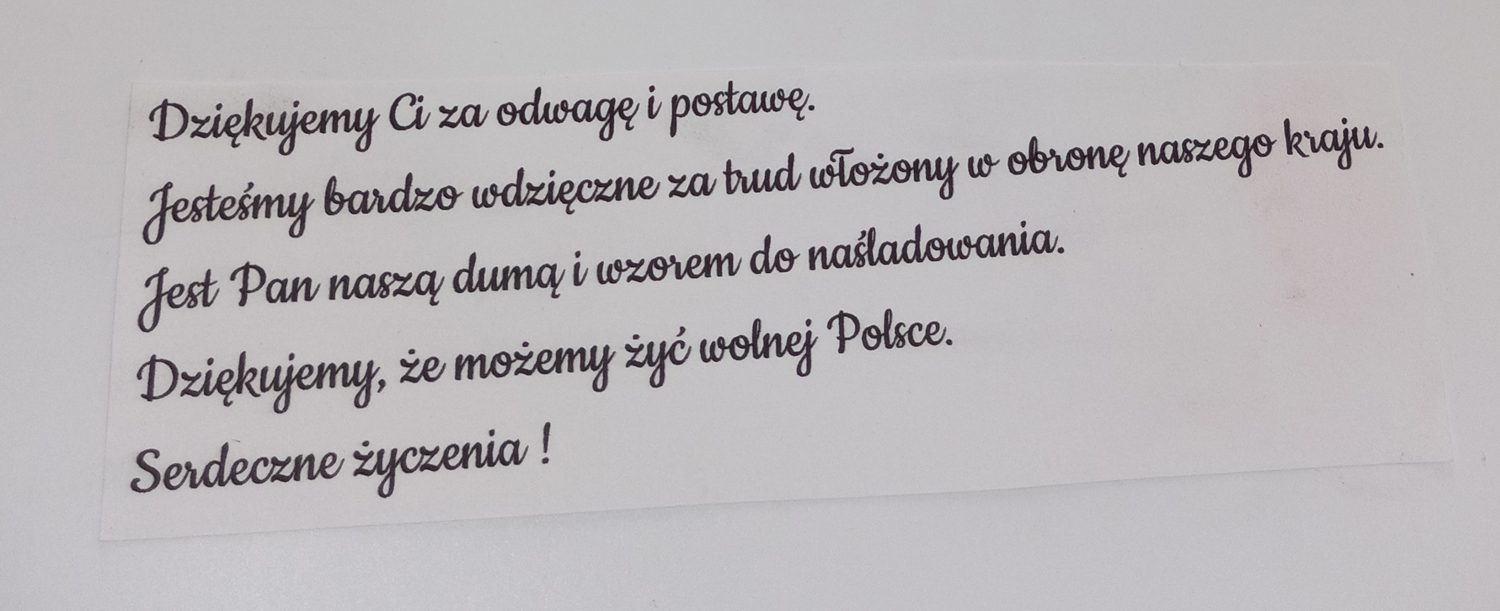 Dziękujemy Ci za odwagę i postawę.
Jesteśmy bardzo wdzięczne za trud włożony w obronę naszego kraju.
Jest Pan naszą dumą i wzorem do naśladowania.
Dziękujemy, że możemy żyć wolnej Polsce.
Serdeczne życzenia !